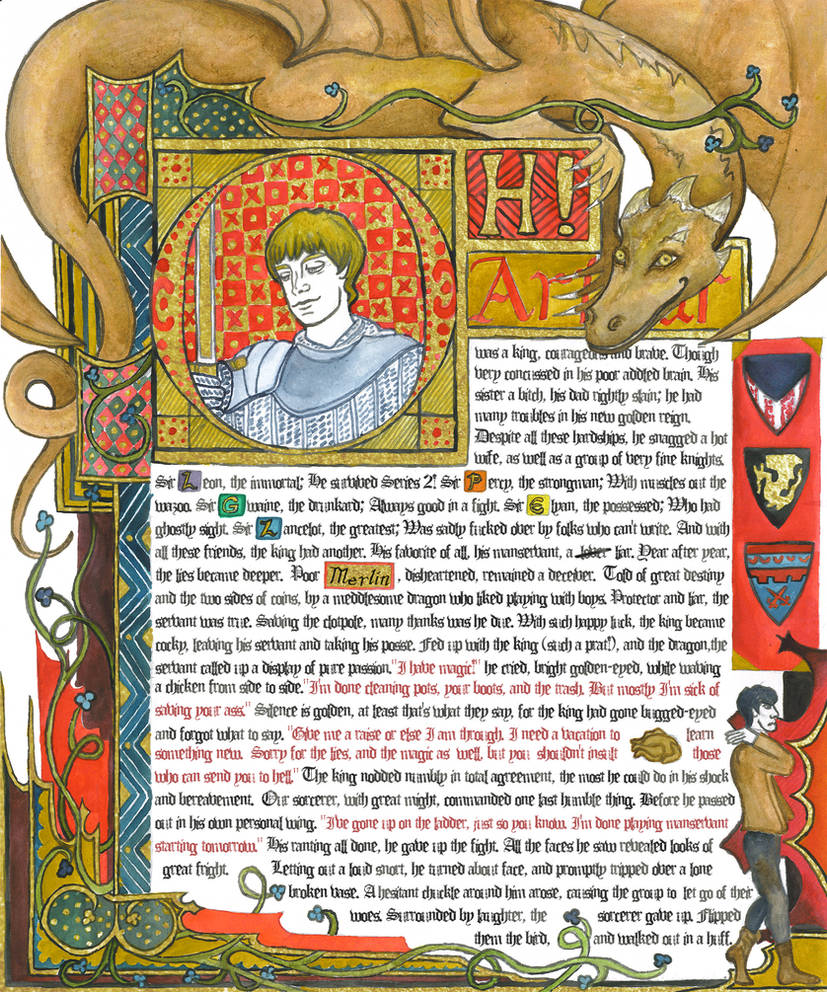 OH!
Arthur
was a king, courageous and brave. Though
very concussed in his poor addled brain. His
sister a bitch, his dad rightly slain; he had
many troubles in his new golden reign.
Despite all these hardships, he snagged a hot
wife, as well as a group of very fine knights.
Sir Leon, the immortal; He survived Series 2! Sir Percy, the strongman; With muscles out the
wazoo. Sir Gwaine, the drunkard; Always good in a fight. Sir Elyan, the possessed; Who had
ghostly sight. Sir Lancelot, the greatest; Was sadly fucked over by folks who can't write. And with
all these friends, the king had another. His favorite of all, his manservant, a liar. Year after year,
the lies became deeper. Poor Merlin, disheartened, remained a deceiver. Told of great destiny
and the two sides of coins, by a meddlesome dragon who liked playing with boys. Protector and liar, the
servant was true. Saving the clotpole, many thanks was he due. With such happy luck, the king became
cocky, leaving his servant and taking his posse. Fed up with the king (such a prat!), and the dragon, the
servant called up a display of pure passion. "I have magic!" he cried, bright golden-eyed, while waving
a chicken from side to side. "I'm done cleaning pots, your boots, and the trash. But mostly I'm sick of
saving your ass." Silence is golden, at least that's what they say, for the king had gone bugged-eyed
and forgot what to say. "Give me a raise or else I am through. I need a vacation to learn
something new. Sorry for the lies, and the magic as well, but you shouldn't insult those
who can send you to hell." The king nodded numbly in total agreement, the most he could do in his shock
and bereavement. Our sorcerer, with great might, commanded one last humble thing. Before he passed
out in his own personal wing. "I've gone up on the ladder, just so you know. I'm done playing manservant
starting tomorrow." His ranting all done, he gave up the fight. All the faces he saw revealed looks of
great fright. Letting out a loud snort, he turned about face, and promptly tripped over a lone
broken vase. A hesitant chuckle around him arose, causing the group to let go of their
woes. Surrounded by laughter, the sorcerer gave up. Flipped
them the bird, and walked out in a huff.